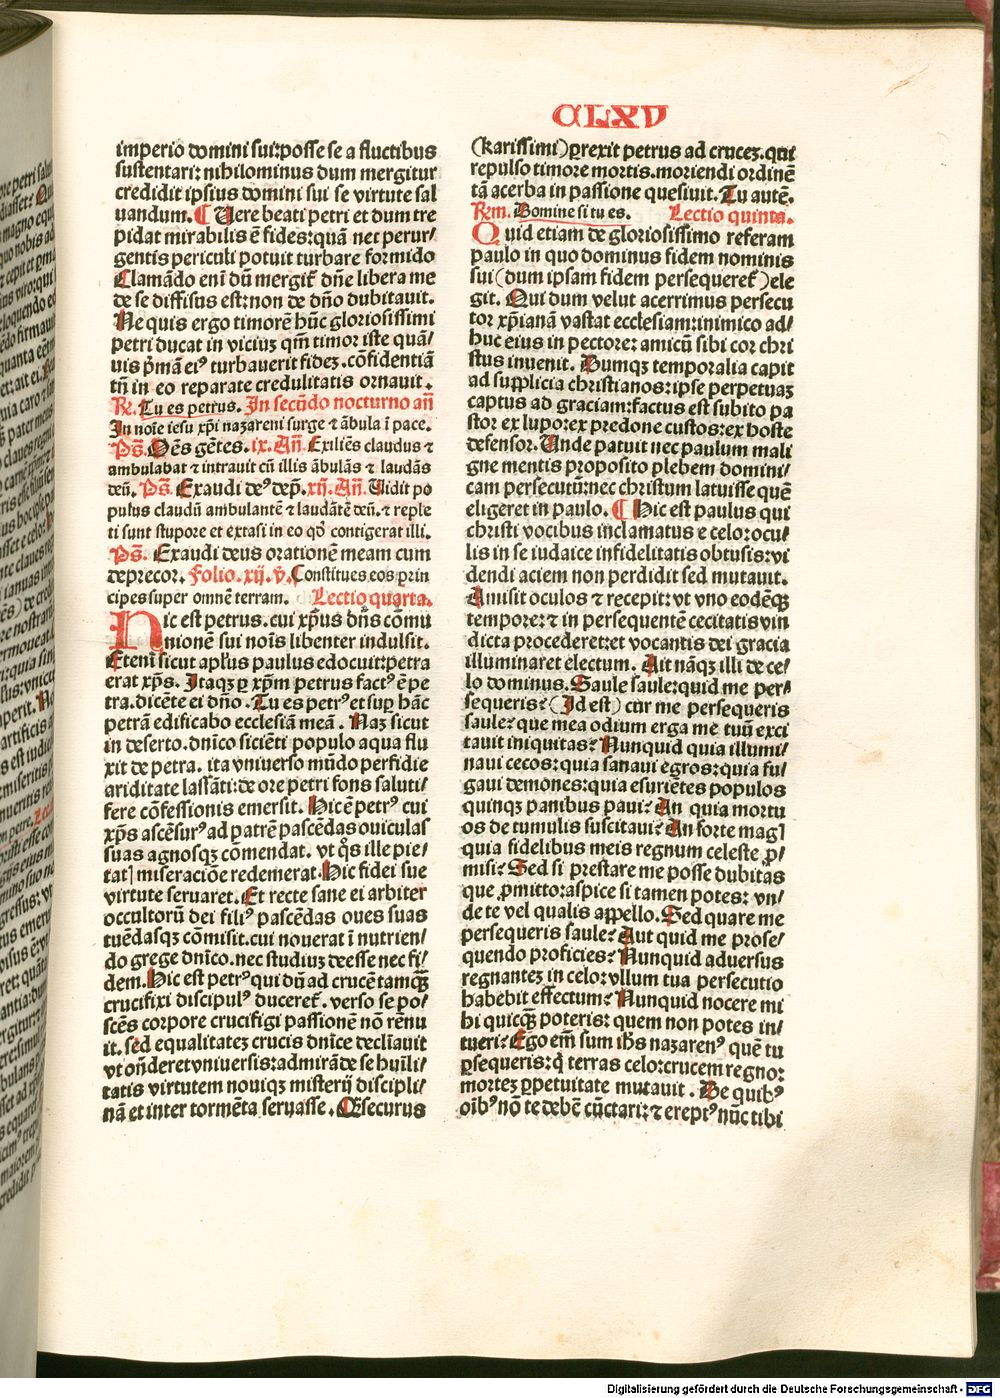 CLXV
imperio domini sui: posse se a fluctibus
sustentari: nihilominus dum mergitur
credidit ipsius domini sui se virtute sal
uandum. ¶ Uere beati petri et dum tre
pidat mirabilis ē fides: quā nec perur/
gentis periculi potuit turbare formido
Clamādo enī dū mergit᷑ dn̄e libera me
de se diffisus est: non de dn̄o dubitauit.
Ne quis ergo timorē hūc gloriosissimi
petri ducat in viciuȝ qm̄ timor iste quā/
uis p̄mā eiꝰ turbauerit fideȝ. cōfidentiā
tn̄ in eo reparate credulitatis ornauit.
R̄. Tu es petrus. In secūdo nocturno an̄
In noīe iesu xp̄i nazareni surge ⁊ ābula ī pace.
Ps̄. Oēs gētes. ix. An̄. Exiliēs claudus ⁊
ambulabat ⁊ intrauit cū illis ābulās ⁊ laudās
deū. Ps̄. Exaudi deꝰ dep̄. xij. An̄. Uidit po
pulus claudū ambulantē ⁊ laudātē deū. ⁊ reple
ti sunt stupore et extasi in eo qd̄ contigerat illi.
Ps̄. Exaudi deus orationē meam cum
deprecor. Folio. xij. v̄. Constitues eos prin
cipes super omnē terram. Lectio quarta.
Hic est petrus. cui xp̄us dn̄s cōmu
nionē sui noīs libenter indulsit.
Etenī sicut apl̄us paulus edocuit: petra
erat xp̄s. Itaqȝ ꝑ xp̄m petrus factꝰ ē pe
tra. dicēte ei dn̄o. Tu es petrꝰ et suꝑ hāc
petrā edificabo ecclesiā meā. Naȝ sicut
in deserto. dn̄ico sicièti populo aqua flu
xit de petra. ita vniuerso mūdo perfidie
ariditate lassāti: de ore petri fons saluti/
fere cōfessionis emersit. Hic ē petrꝰ cui
xp̄s ascēsurꝰ ad patrē pascēdas ouiculas
suas agnosqȝ cōmendat. vt q̄s ille pie/
tatꝭ miseracióe redemerat. Hic fidei sue
virtute seruaret. Et recte sane ei arbiter
occultorū dei filiꝰ pascēdas oues suas
tuēdasqȝ cōmisit. cui nouerat ī nutrien/
do grege dn̄ico. nec studiuȝ deesse nec fi/
dem. Hic est petrꝰ qui dū ad crucē tamqȝ̄
crucifixi discipulꝰ duceret᷑. verso se po/
scēs corpore crucifigi passionē nō rēnu
it. sed equalitateȝ crucis dn̄ice decliauit
vt on̄deret vniuersis: admirāde se huīli/
tatis virtutem nouiqȝ misterij discipli/
nā et inter tormēta seruasse. O securus
(karissimi) ꝑrexit petrus ad cruceȝ. qui
repulso timore mortis. moriendi ordinē
tā acerba in passione quesiuit. Tu autē.
R̄m. Domine si tu es. Lectio quinta.
Quid etiam de gloriosissimo referam
paulo in quo dominus fidem nominis
sui (dum ipsam fidem persequeret᷑) ele
git. Qui dum velut acerrimus persecu
tor xp̄ianā vastat ecclesiam: inimico ad/
huc eius in pectore: amicū sibi cor chri
stus inuenit. Dumqȝ temporalia capit
ad supplicia christianos: ipse perpetuaȝ
captus ad graciam: factus est subito pa
stor ex lupo: ex predone custos: ex hoste
defensor. Unde patuit nec paulum mali
gne mentis proposito plebem domini/
cam persecutū: nec christum latuisse quē
eligeret in paulo. ¶ Hic est paulus qui
christi vocibus inclamatus e celo: ocu/
lis in se iudaice infidelitatis obtusis: vi
dendi aciem non perdidit sed mutauit.
Amisit oculos ⁊ recepit: vt vno eodēqȝ
tempore: ⁊ in persequentē cecitatis vin
dicta procederet: et vocantis dei gracia
illuminaret electum. Ait nāqȝ illi de ce/
lo dominus. Saule saule: quid me per/
sequeris? (Id est) cur me persequeris
saule? que mea odium erga me tuū exci
tauit iniquitas? Nunquid quia illumi/
naui cecos: quia sanaui egros: quia fu/
gaui demones: quia esuriētes populos
quinqȝ panibus paui? An quia mortu
os de tumulis suscitaui? An forte magꝭ
quia fidelibus meis regnum celeste ꝓ/
misi? Sed si prestare me posse dubitas
que ꝓmitto: aspice si tamen potes: vn/
de te vel qualis appello. Sed quare me
persequeris saule? Aut quid me prose/
quendo proficies? Nunquid aduersus
regnanteȝ in celo: vllum tua persecutio
habebit effectum? Nunquid nocere mi
hi quicqȝ̄ poteris: quem non potes in/
tueri? Ego em̄ sum ih̄s nazarenꝰ quē tu
ꝑsequeris: q̄ terras celo: crucem regno:
morteȝ ꝑpetuitate mutauit. De quibꝰ
oībꝰ nō te debē cūctari: ⁊ ereptꝰ nūc tibi
Digitalisierung gefördert durch die Deutsche Forschungsgemeinschaft - DFG